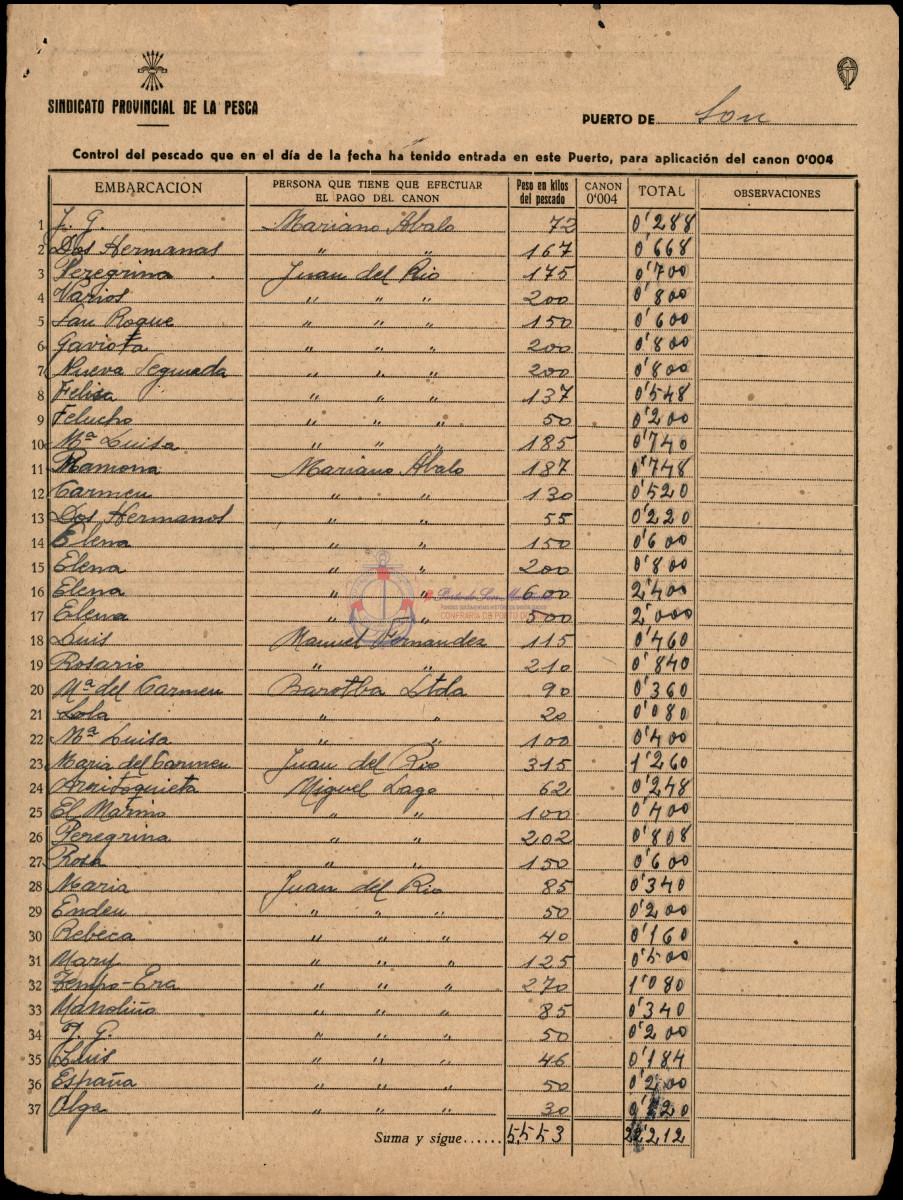 SINDICATO PROVINCIAL DE LA PESCA
PUERTO DE Son
Control del pescado que en el día de la fecha ha tenido entrada en este Puerto, para aplicación del canon 0'004
EMBARCACION PERSONA QUE TIENE QUE EFECTUAR EL PAGO DEL CANON Peso en kilos del pescado CANON 0'004 TOTAL OBSERVACIONES
1 J. G. Mariano Abalo 72 0'288
2 Dos Hermanas " " 167 0'668
3 Peregrina Juan del Rio 175 0'700
4 Varios " " " 200 0'800
5 San Roque " " " 150 0'600
6 Gaviota " " " 200 0'800
7 Nueva Segunda " " " 200 0'800
8 Felisa " " " 137 0'548
9 Felucho " " " 50 0'200
10 Mª Luisa " " " 185 0'740
11 Ramona Mariano Abalo 187 0'748
12 Carmen " " 130 0'520
13 Dos Hermanos " " 55 0'220
14 Elena " " 150 0'600
15 Elena " " 200 0'800
16 Elena " " 600 2'400
17 Elena " " 500 2'000
18 Luis Manuel Fernandez 115 0'460
19 Rosario " " 210 0'840
20 Mª del Carmen Barotba Ltda 90 0'360
21 Lola " " 20 0'080
22 Mª Luisa " " 100 0'400
23 Maria del Carmen Juan del Rio 315 1'260
24 Miguel Lago 62 0'248
25 El Marino " " 100 0'400
26 Peregrina " " 202 0'808
27 Rosa " " 150 0'600
28 Maria Juan del Rio 85 0'340
29 Enden " " " 50 0'200
30 Rebeca " " " 40 0'160
31 Mary " " " 125 0'500
32 Tempo-Era " " " 270 1'080
33 Manoliño " " " 85 0'340
34 J. G. " " " 50 0'200
35 Luis " " " 46 0'184
36 España " " " 50 0'200
37 Olga " " " 30 0'120
Suma y sigue...... 5.553 22'212
CONFRARÍA DE PORTO DO SON